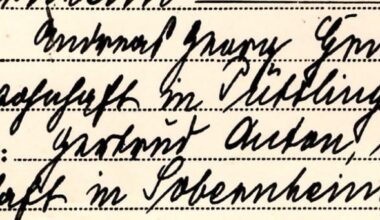 Andreas Georg
wohnhaft in Püttling
: Gertrud Anton,
aft in Sobernheim